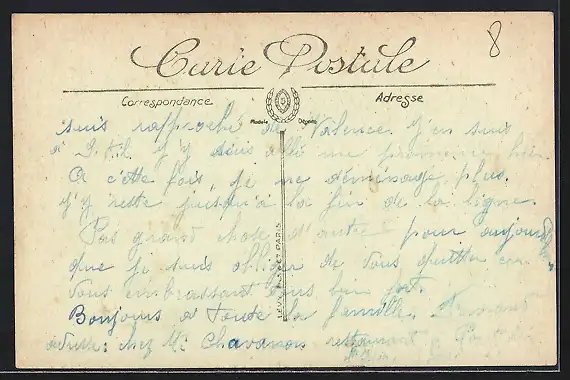 8
Carte Postale
Correspondance
Adresse
Modèle Déposé
suis rapproché de Valence. J'en suis
à j'y suis allé me promener hier
A cette fois, je ne déménage plus.
j'y reste jusqu'à la fin de la ligne.
Pas grand chose d'autre pour aujourd
que je suis obligé de vous quitter en
vous embrassant tous bien fort.
Bonjours à toute la famille. Armand
adresse: chez Mr Chavanon restaurant
PARIS